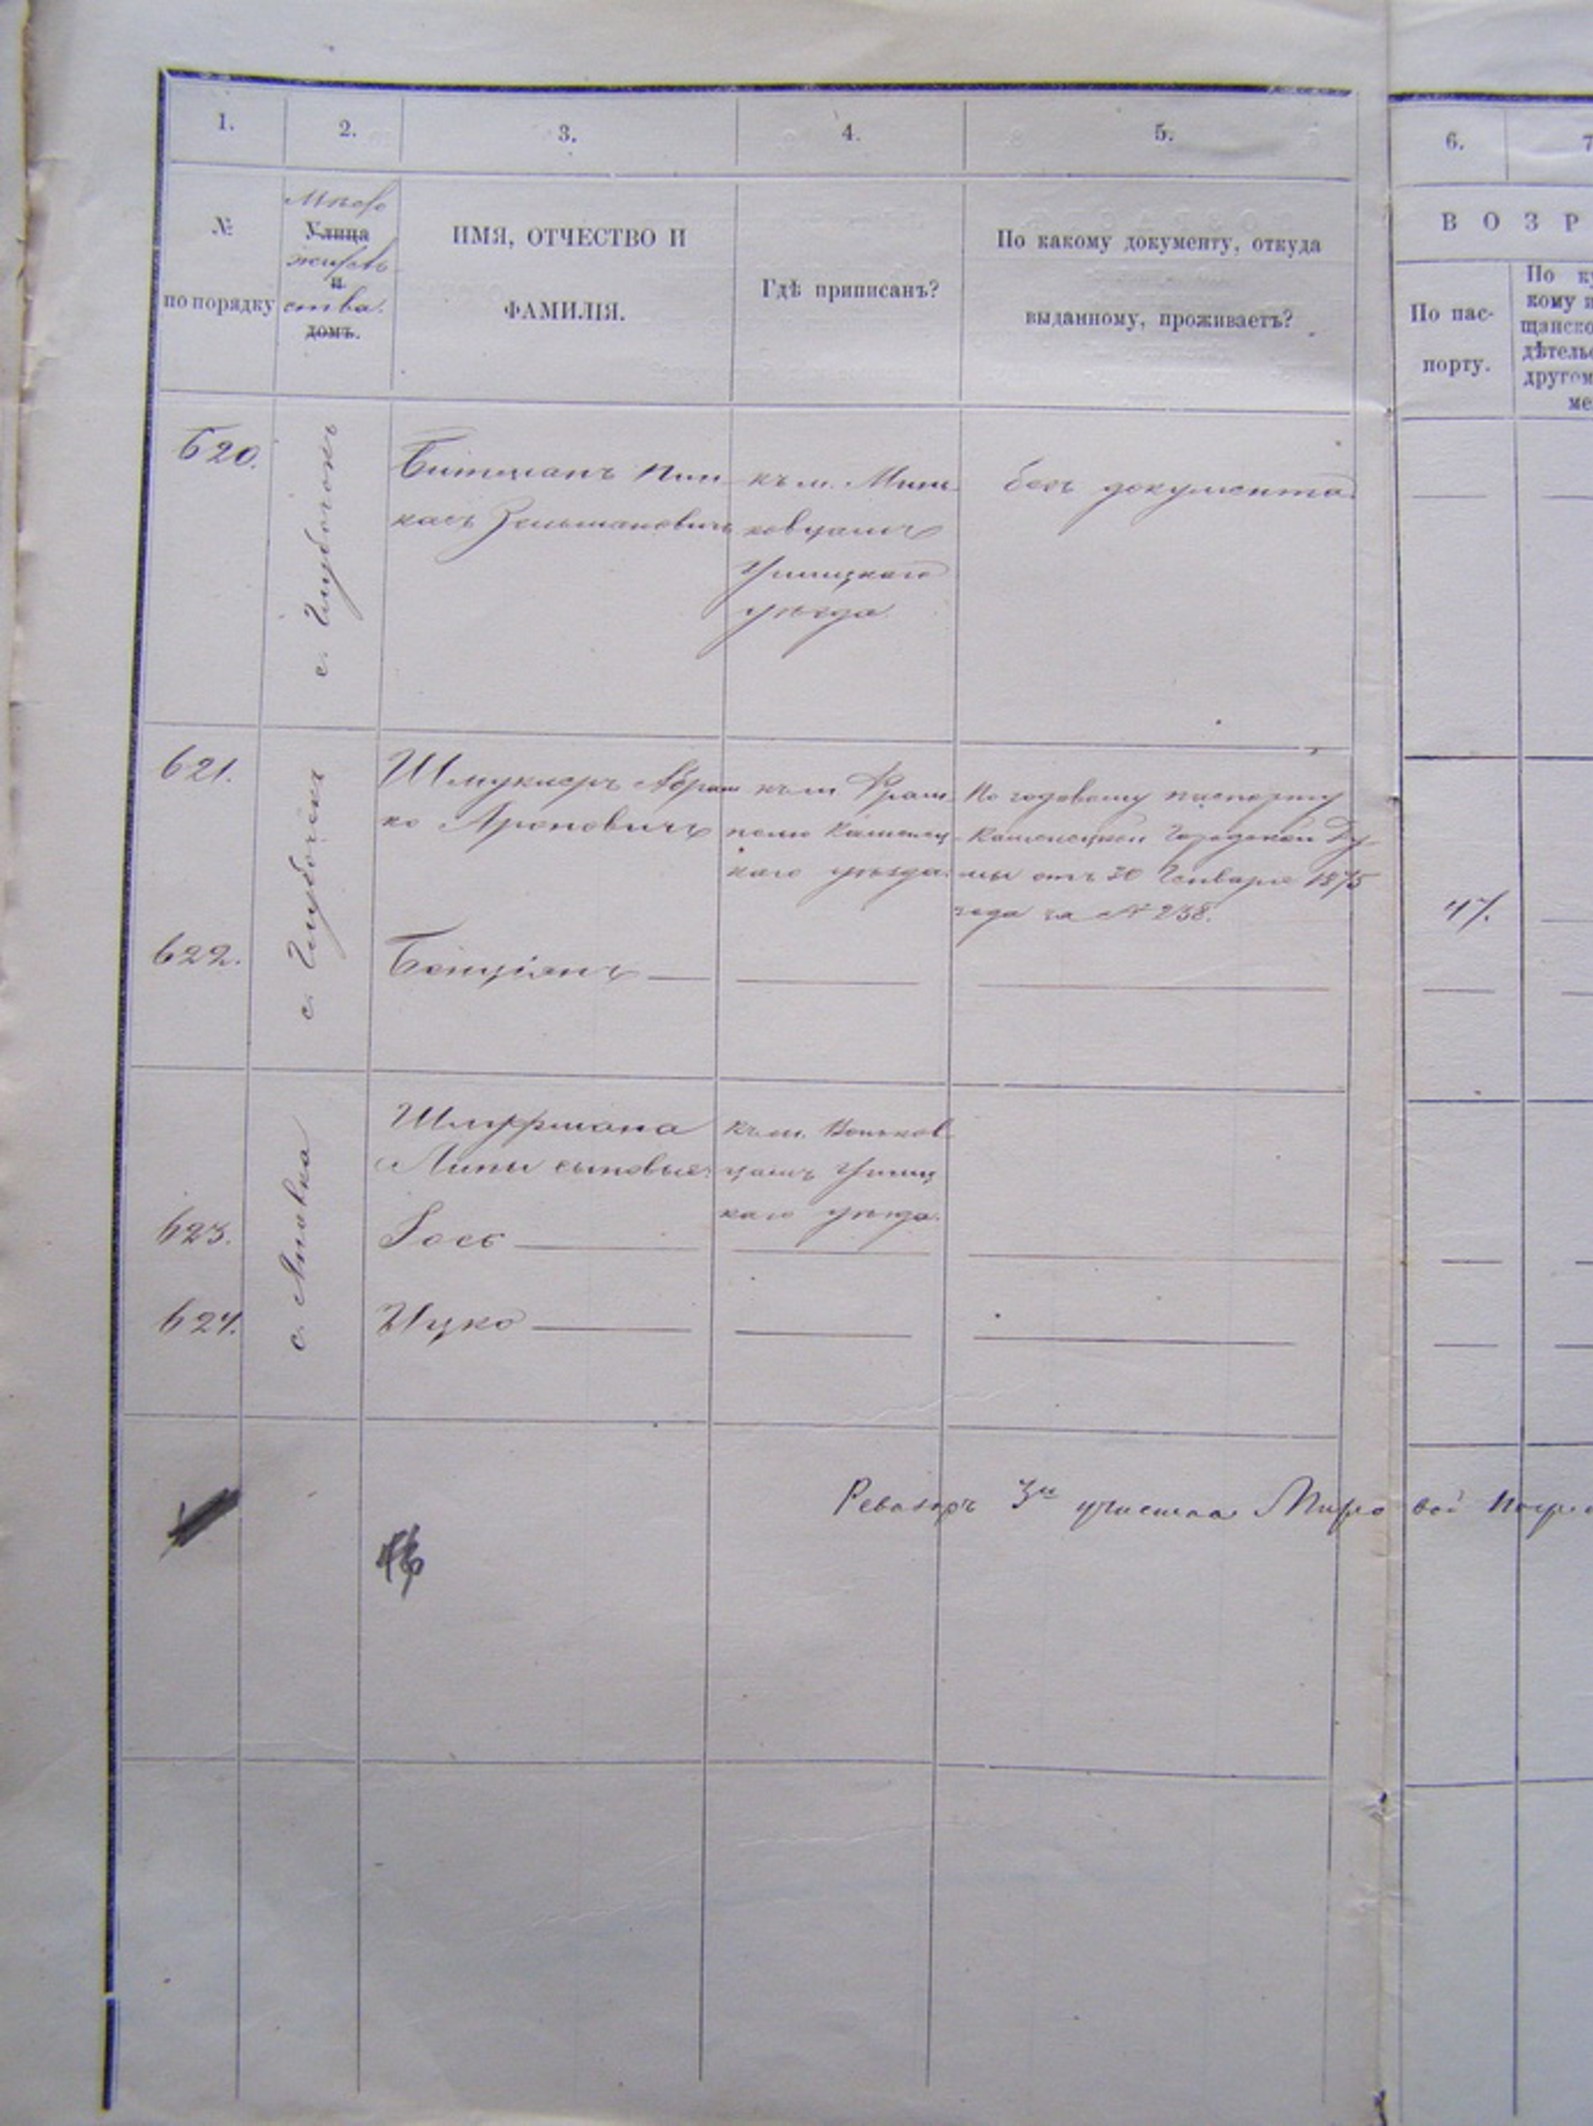 1. 2. 3. 4. 5. 6. 7
№
по порядку
Улица
жительства
и
домъ.
ИМЯ, ОТЧЕСТВО И
ФАМИЛІЯ.
Гдѣ приписанъ?
По какому документу, откуда
выданному, проживаетъ?
В О З Р
По пас-
порту.
По ку
кому и
щанско
дѣтель
другом
ме
620.
с.
Пин
касъ Зельмановичъ
къ м. Минь
ковцамъ
Ушицкаго
уѣзда
безъ документа
621.
с.
Шмуклеръ Абрам
ко Ароновичъ
къ м Фрам
полю Каменец
каго уѣзда.
По годовому паспорту
Каменецкой Городской Ду-
мы отъ 30 Генваря 1875
года за № 238.
47.
622.
Бенціонъ
с.
къ м. Вонъков
цамъ Ушиц
каго уѣзда.
Липы сыновье:
623.
Іось
624.
Ицко
Ревизоръ 3го участка Миро вой